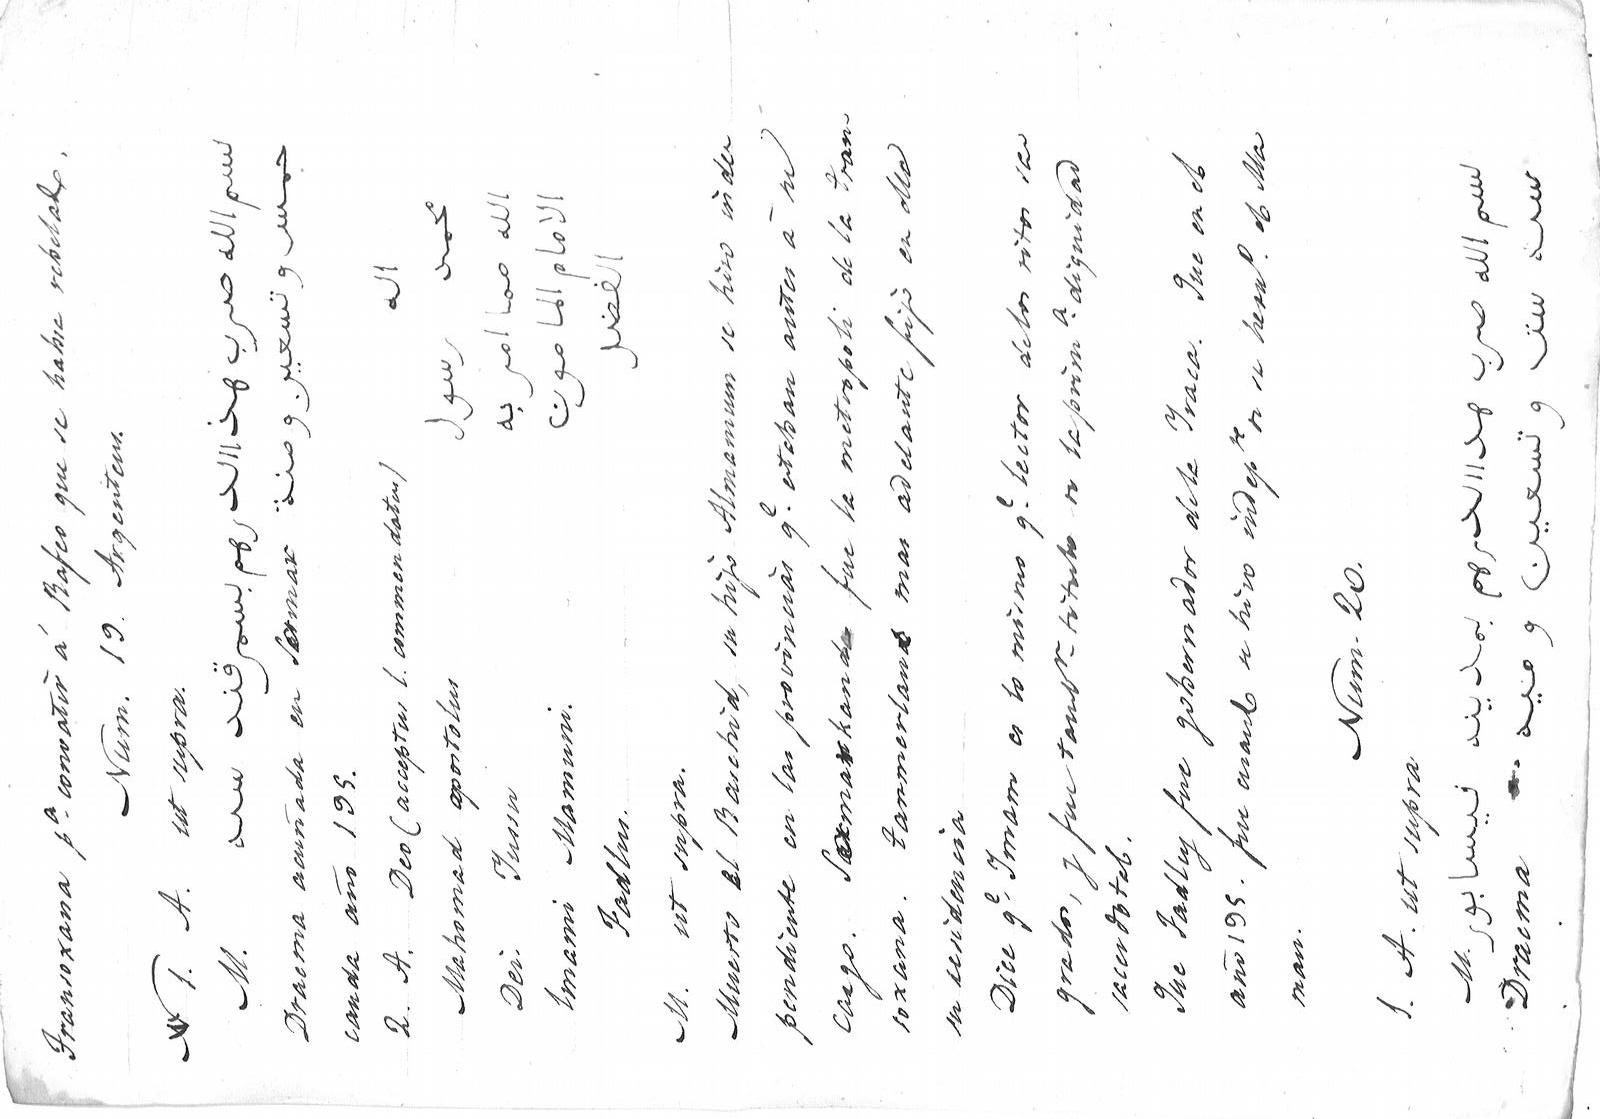 Transoxana pᵃ. convatir á Rafeo que se habie rebelado.
Num. 19. Argenteus.
1. A. ut supra.
M. بسم الله ضرب هذا الدرهم بسمرقند سنة
خمس وتسعين ومئة Dracma acuñada en Samar
canda año 195.
2. A. Deo (acceptus l. commendatus) لله
Mahomad apostolus محمد رسول
Dei Jussu الله مما امر به
Imami Mamuni. الامام المامون
Fadlus. الفضل
M. ut supra.
Muerto el Raschid, su hijo Almamum se hizo inde
pendiente en las provincias qᵉ. estaban antes á su
cargo. Samarkanda fue la metropoli de la Tran
soxana. Tammerlan mas adelante fijó en ella
su residencia
Dice qᵉ. Imam es lo mismo qᵉ. lector de los ritos sa
grados, y fue tambⁿ. titulo de la primᵃ. dignidad
sacerdotal.
Jue Fadley fue gobernador de la Yraca. Jue en el
año 195. fue cuando se hizo indepᵗᵉ de su herᵒ. el Ma
man.
Num. 20.
1. A. ut supra
M. بسم الله ضرب هذا الدرهم بمدينة نيسابور
سنة ست وتسعين ومية Dracma